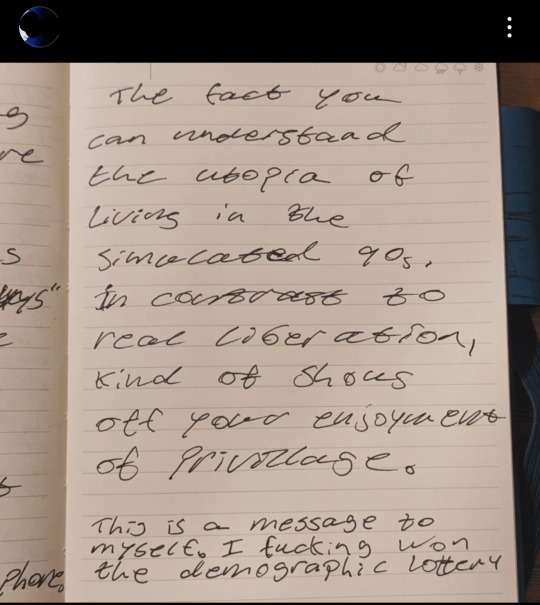 The fact you
can understaad
the utopia of
living in the
simulated 90s,
in contrast to
real liberation,
kind of shows
off your enjoyment
of Privillage.
This is a message to
myself. I fucking won
the demographic lottery
phone.